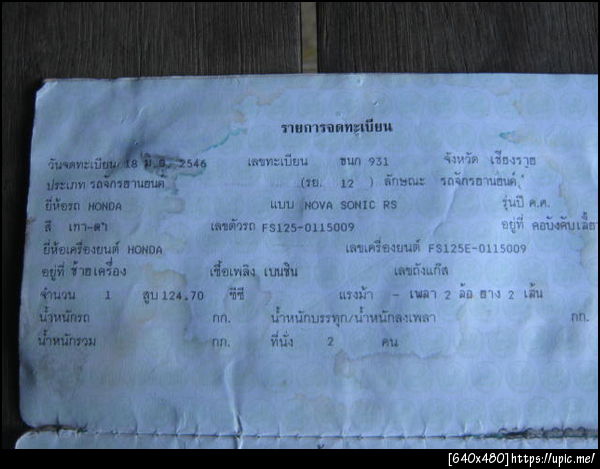 รายการจดทะเบียน
วันจดทะเบียน 18 มิ.ย. 2546 เลขทะเบียน ขนก 931 จังหวัด เชียงราย
ประเภท รถจักรยานยนต์ (รย. 12 ) ลักษณะ รถจักรยานยนต์
ยี่ห้อรถ HONDA แบบ NOVA SONIC RS รุ่นปี ค.ศ.
สี เทา-ดำ เลขตัวรถ FS125-0115009 อยู่ที่ คอบังคับเลี้ยว
ยี่ห้อเครื่องยนต์ HONDA เลขเครื่องยนต์ FS125E-0115009
อยู่ที่ ซ้ายเครื่อง เชื้อเพลิง เบนซิน เลขถังแก๊ส
จำนวน 1 สูบ 124.70 ซีซี แรงม้า - เพลา 2 ล้อ ยาง 2 เส้น
น้ำหนักรถ กก. น้ำหนักบรรทุก/น้ำหนักลงเพลา กก.
น้ำหนักรวม กก. ที่นั่ง 2 คน
[640x480]https://upic.me/